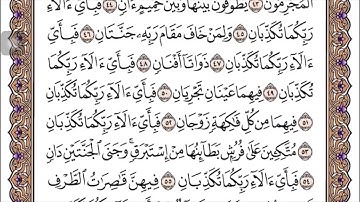 ٱلۡمُجۡرِمُونَ ٤٣ يَطُوفُونَ بَيۡنَهَا وَبَيۡنَ حَمِيمٍ ءَانٖ ٤٤ فَبِأَيِّ ءَالَآءِ
رَبِّكُمَا تُكَذِّبَانِ ٤٥ وَلِمَنۡ خَافَ مَقَامَ رَبِّهِۦ جَنَّتَانِ ٤٦ فَبِأَيِّ
ءَالَآءِ رَبِّكُمَا تُكَذِّبَانِ ٤٧ ذَوَاتَآ أَفۡنَانٖ ٤٨ فَبِأَيِّ ءَالَآءِ رَبِّكُمَا
تُكَذِّبَانِ ٤٩ فِيهِمَا عَيۡنَانِ تَجۡرِيَانِ ٥٠ فَبِأَيِّ ءَالَآءِ رَبِّكُمَا تُكَذِّبَانِ
٥١ فِيهِمَا مِن كُلِّ فَٰكِهَةٖ زَوۡجَانِ ٥٢ فَبِأَيِّ ءَالَآءِ رَبِّكُمَا تُكَذِّبَانِ
٥٣ مُتَّكِـِٔينَ عَلَىٰ فُرُشِۭ بَطَآئِنُهَا مِنۡ إِسۡتَبۡرَقٖۚ وَجَنَى ٱلۡجَنَّتَيۡنِ دَانٖ
٥٤ فَبِأَيِّ ءَالَآءِ رَبِّكُمَا تُكَذِّبَانِ ٥٥ فِيهِنَّ قَٰصِرَٰتُ ٱلطَّرۡفِ